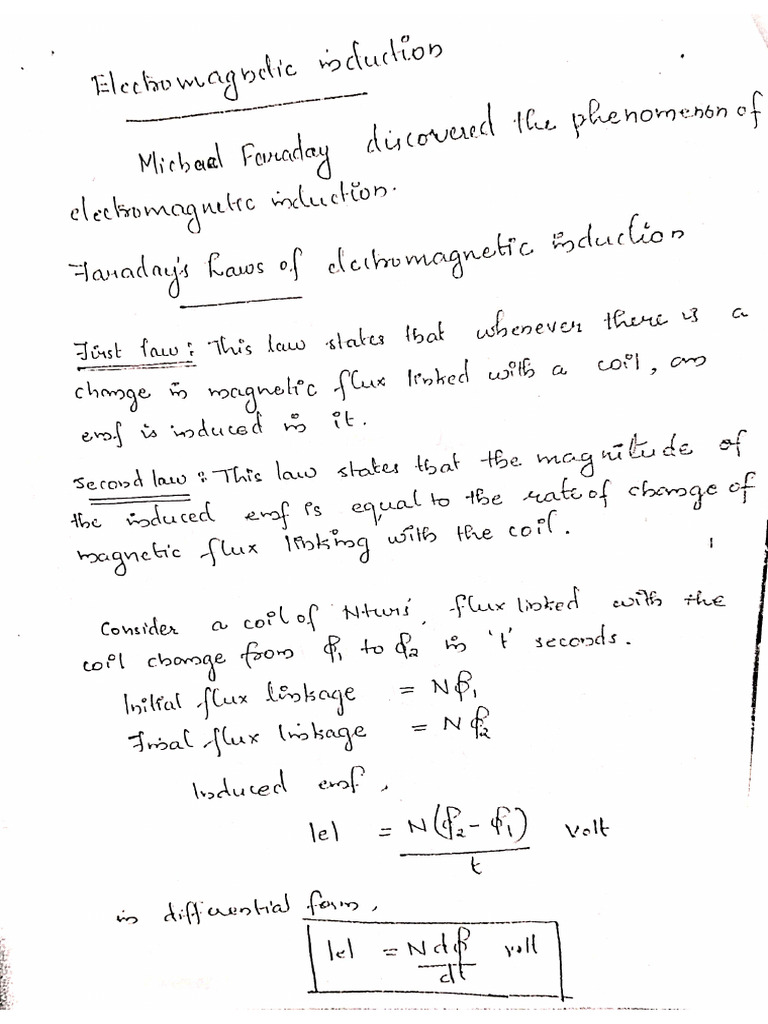 Electromagnetic induction
Michael Faraday discovered the phenomenon of
electromagnetic induction.
Faraday's Laws of electromagnetic induction
First law : This law states that whenever there is a
change in magnetic flux linked with a coil, an
emf is induced in it.
Second law : This law states that the magnitude of
the induced emf is equal to the rate of change of
magnetic flux linking with the coil.
Consider a coil of 'N turns', flux linked with the
coil change from ϕ₁ to ϕ₂ in 't' seconds.
Initial flux linkage = Nϕ₁
Final flux linkage = Nϕ₂
Induced emf,
|e| = N(ϕ₂ - ϕ₁) / t volt
in differential form,
|e| = N dϕ/dt volt